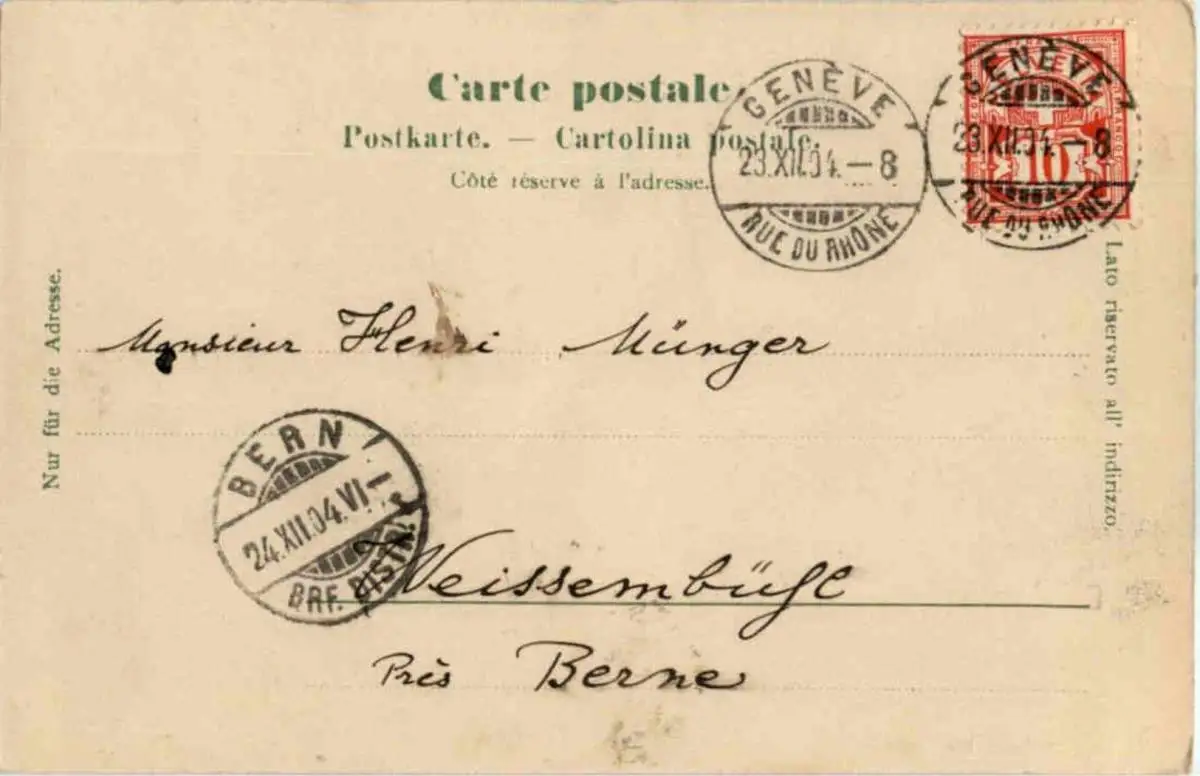 Carte postale.
Postkarte. — Cartolina postale.
Côté réservé à l'adresse.
GENÈVE
23.XII.04.—8
RUE DU RHÔNE
GENÈVE
23.XII.04.—8
RUE DU RHÔNE
10
FRANCO
Nur für die Adresse.
Lato riservato all' indirizzo.
Monsieur Henri Münger
BERN
24.XII.04.VI
BRF. DISTR.
Weissembühl
Près Berne